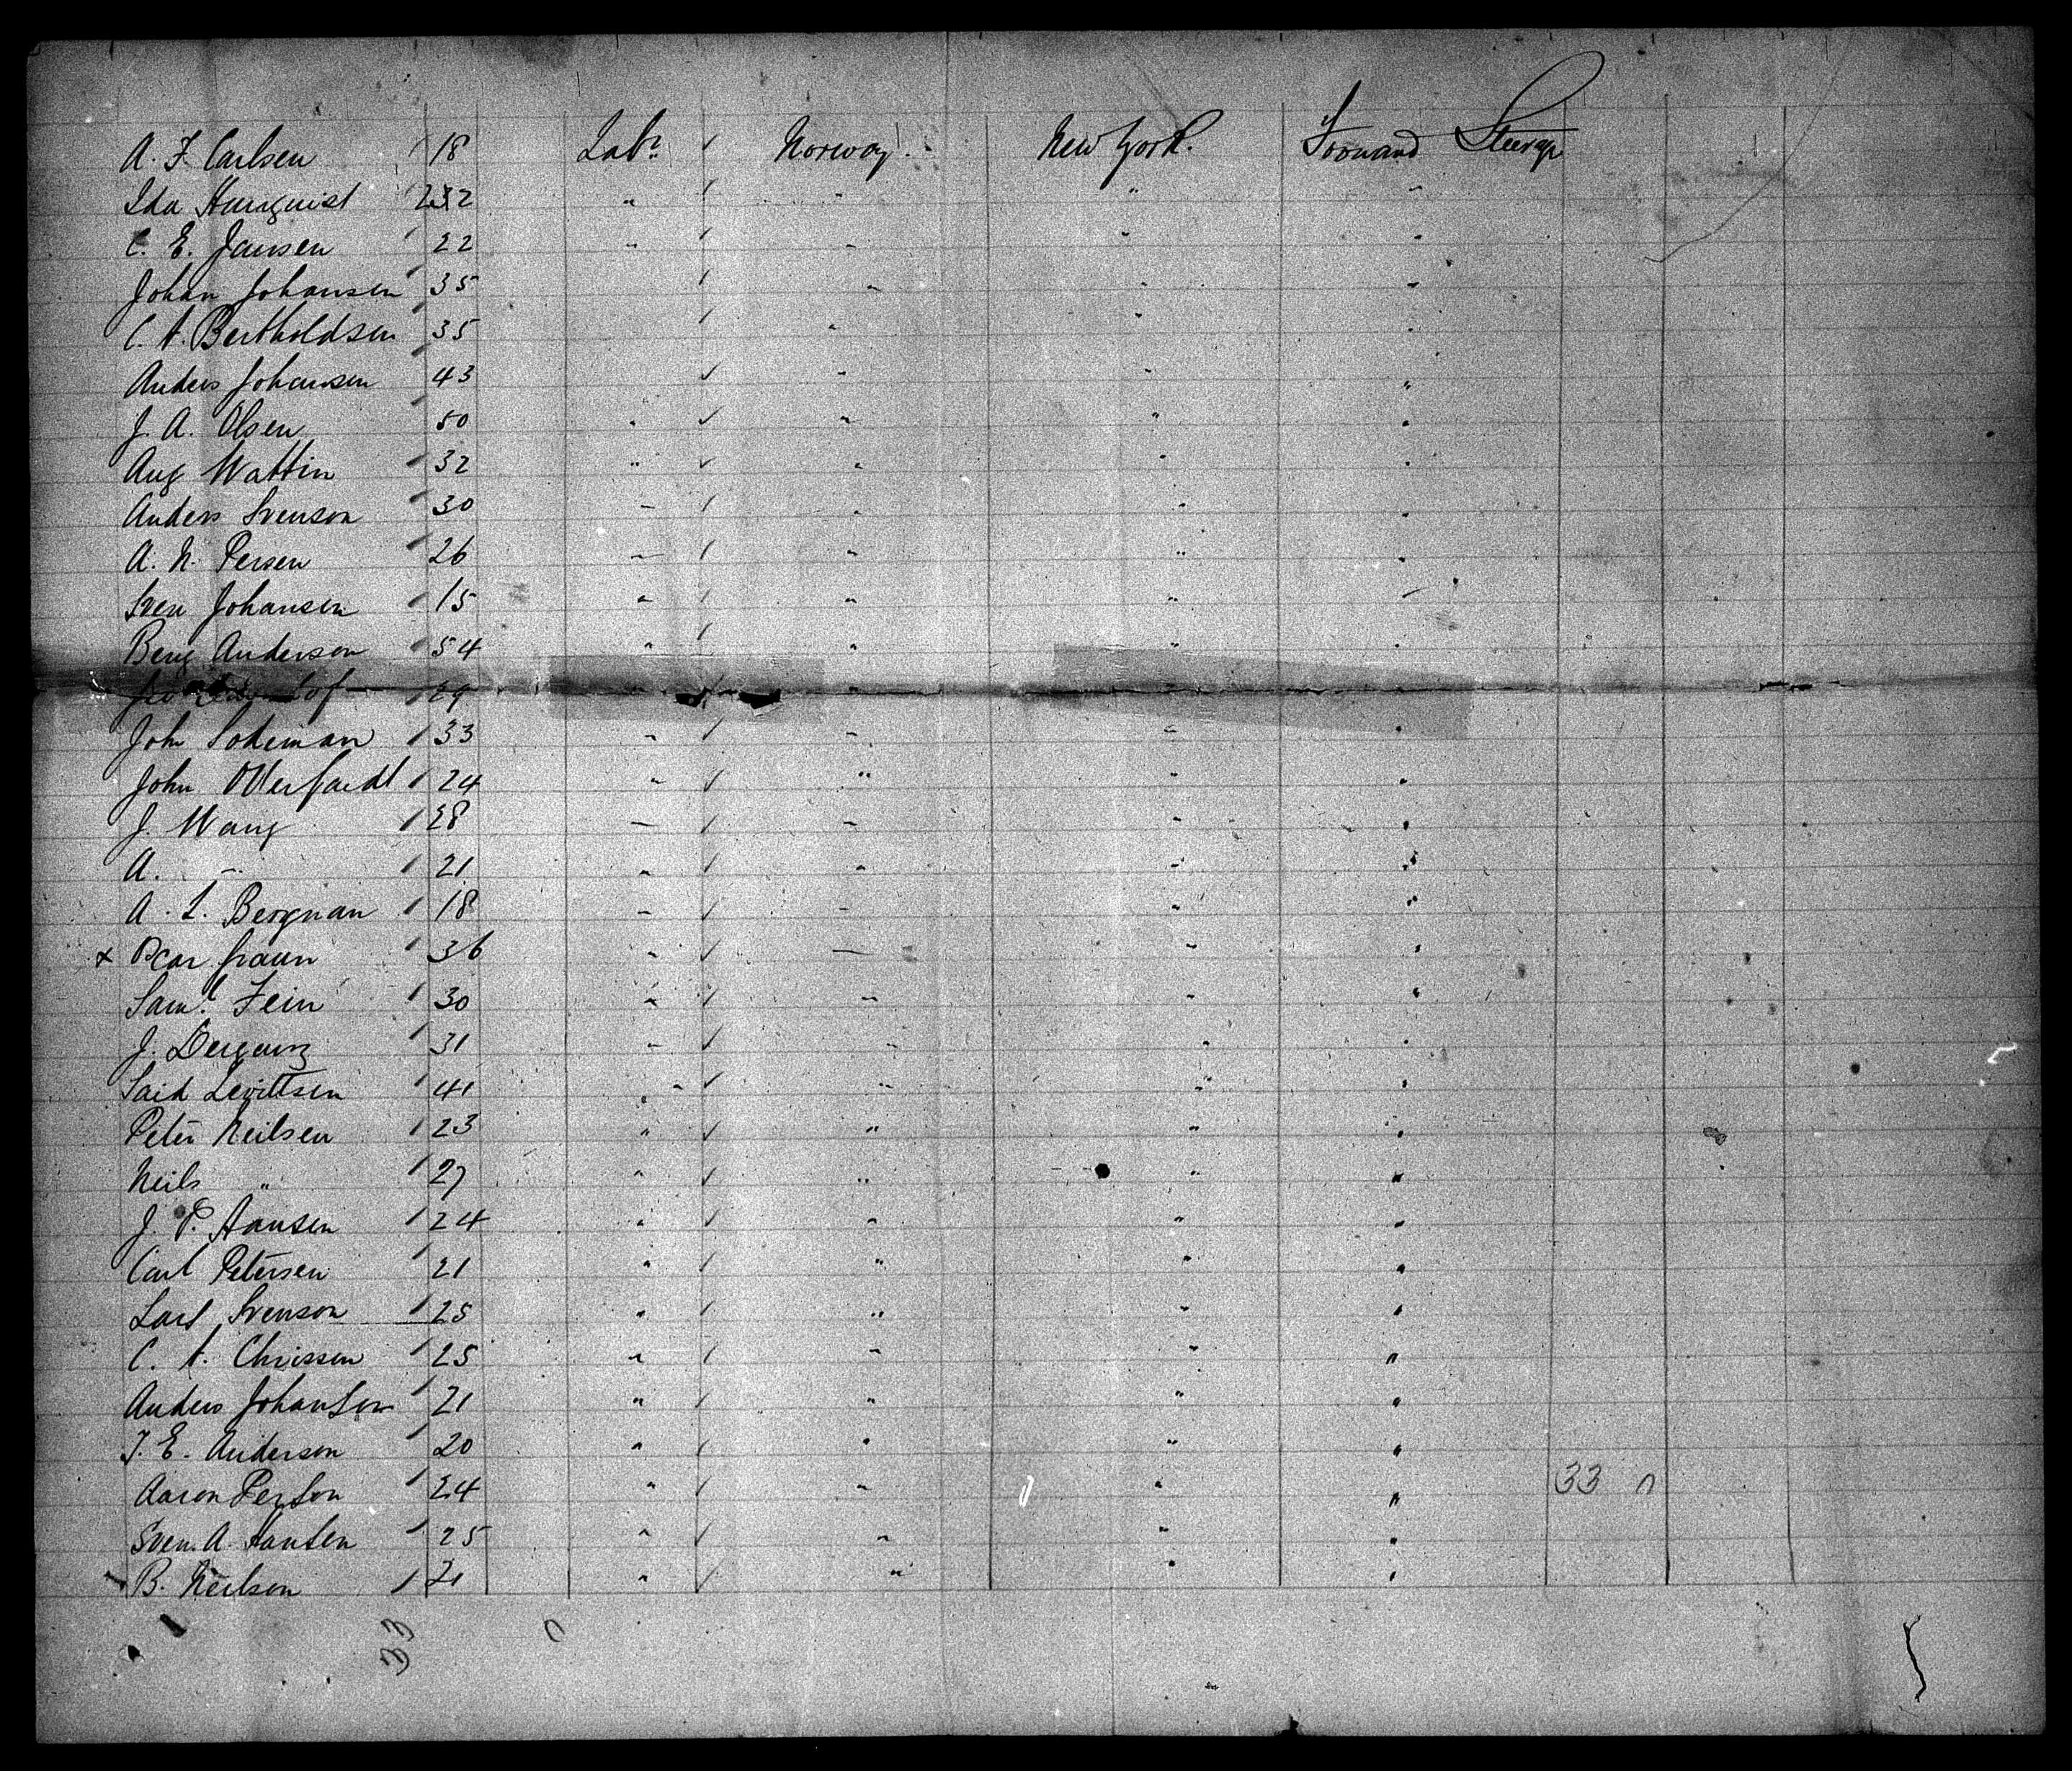 A. F. Carlsen / 18 Labr / Norway. New York. Forward Steerage
Ida Hanquist 22 " / " " "
C. E. Jansen / 22 " / " " "
Johan Johansen / 35 / " " "
C. A. Bertholdsen / 35 / " " "
Anders Johansen / 43 / " " "
J. A. Olsen / 50 " / " " "
Aug Wattin / 32 " / " " "
Anders Svenson / 30 " / " " "
A. N. Persen / 26 " / " " "
Sven Johansen / 15 " / " " "
Beng Anderson / 54 " / " " "
/ 29
John Sodeman / 33 " / " " "
John Otterfardt / 24 " / " " "
J. Wang / 28 " / " " "
A. " / 21 " / " " "
A. L. Bergman / 18 " / " " "
x Oscar Graun / 36 " / " " "
Saml. Fein / 30 " / " " "
J. / 31 " / " " "
Said Levittsen / 41 " / " " "
Peter Neilsen / 23 " / " " "
Neils " / 27 " / " " "
J. P. Hansen / 24 " / " " "
Carl Petersen / 21 " / " " "
Lars Svenson / 25 " / " " "
C. A. Chrissen / 25 " / " " "
Anders Johanson / 21 " / " " "
J. E. Anderson / 20 " / " " "
Aaron Person / 24 " / " " " 33 0
Sven. A. Hansen / 25 " / " " "
B. Neilson / 21 " / " " "
33 0